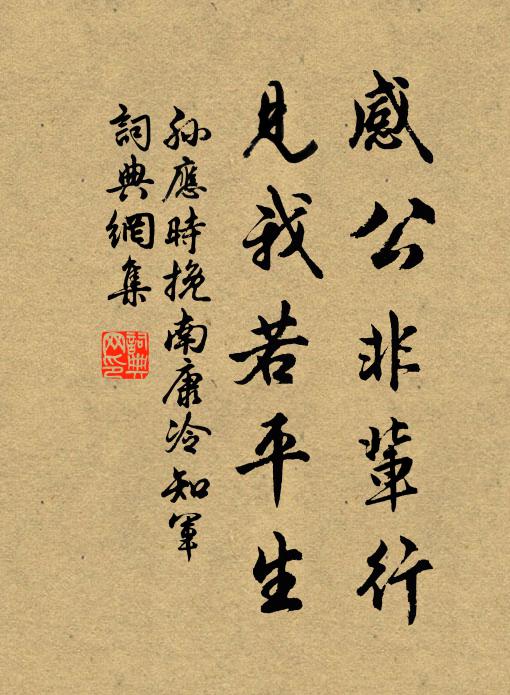 感公非輩行
見我若平生
孫應時挽南康冷知軍
詞典網集
詞典
网印